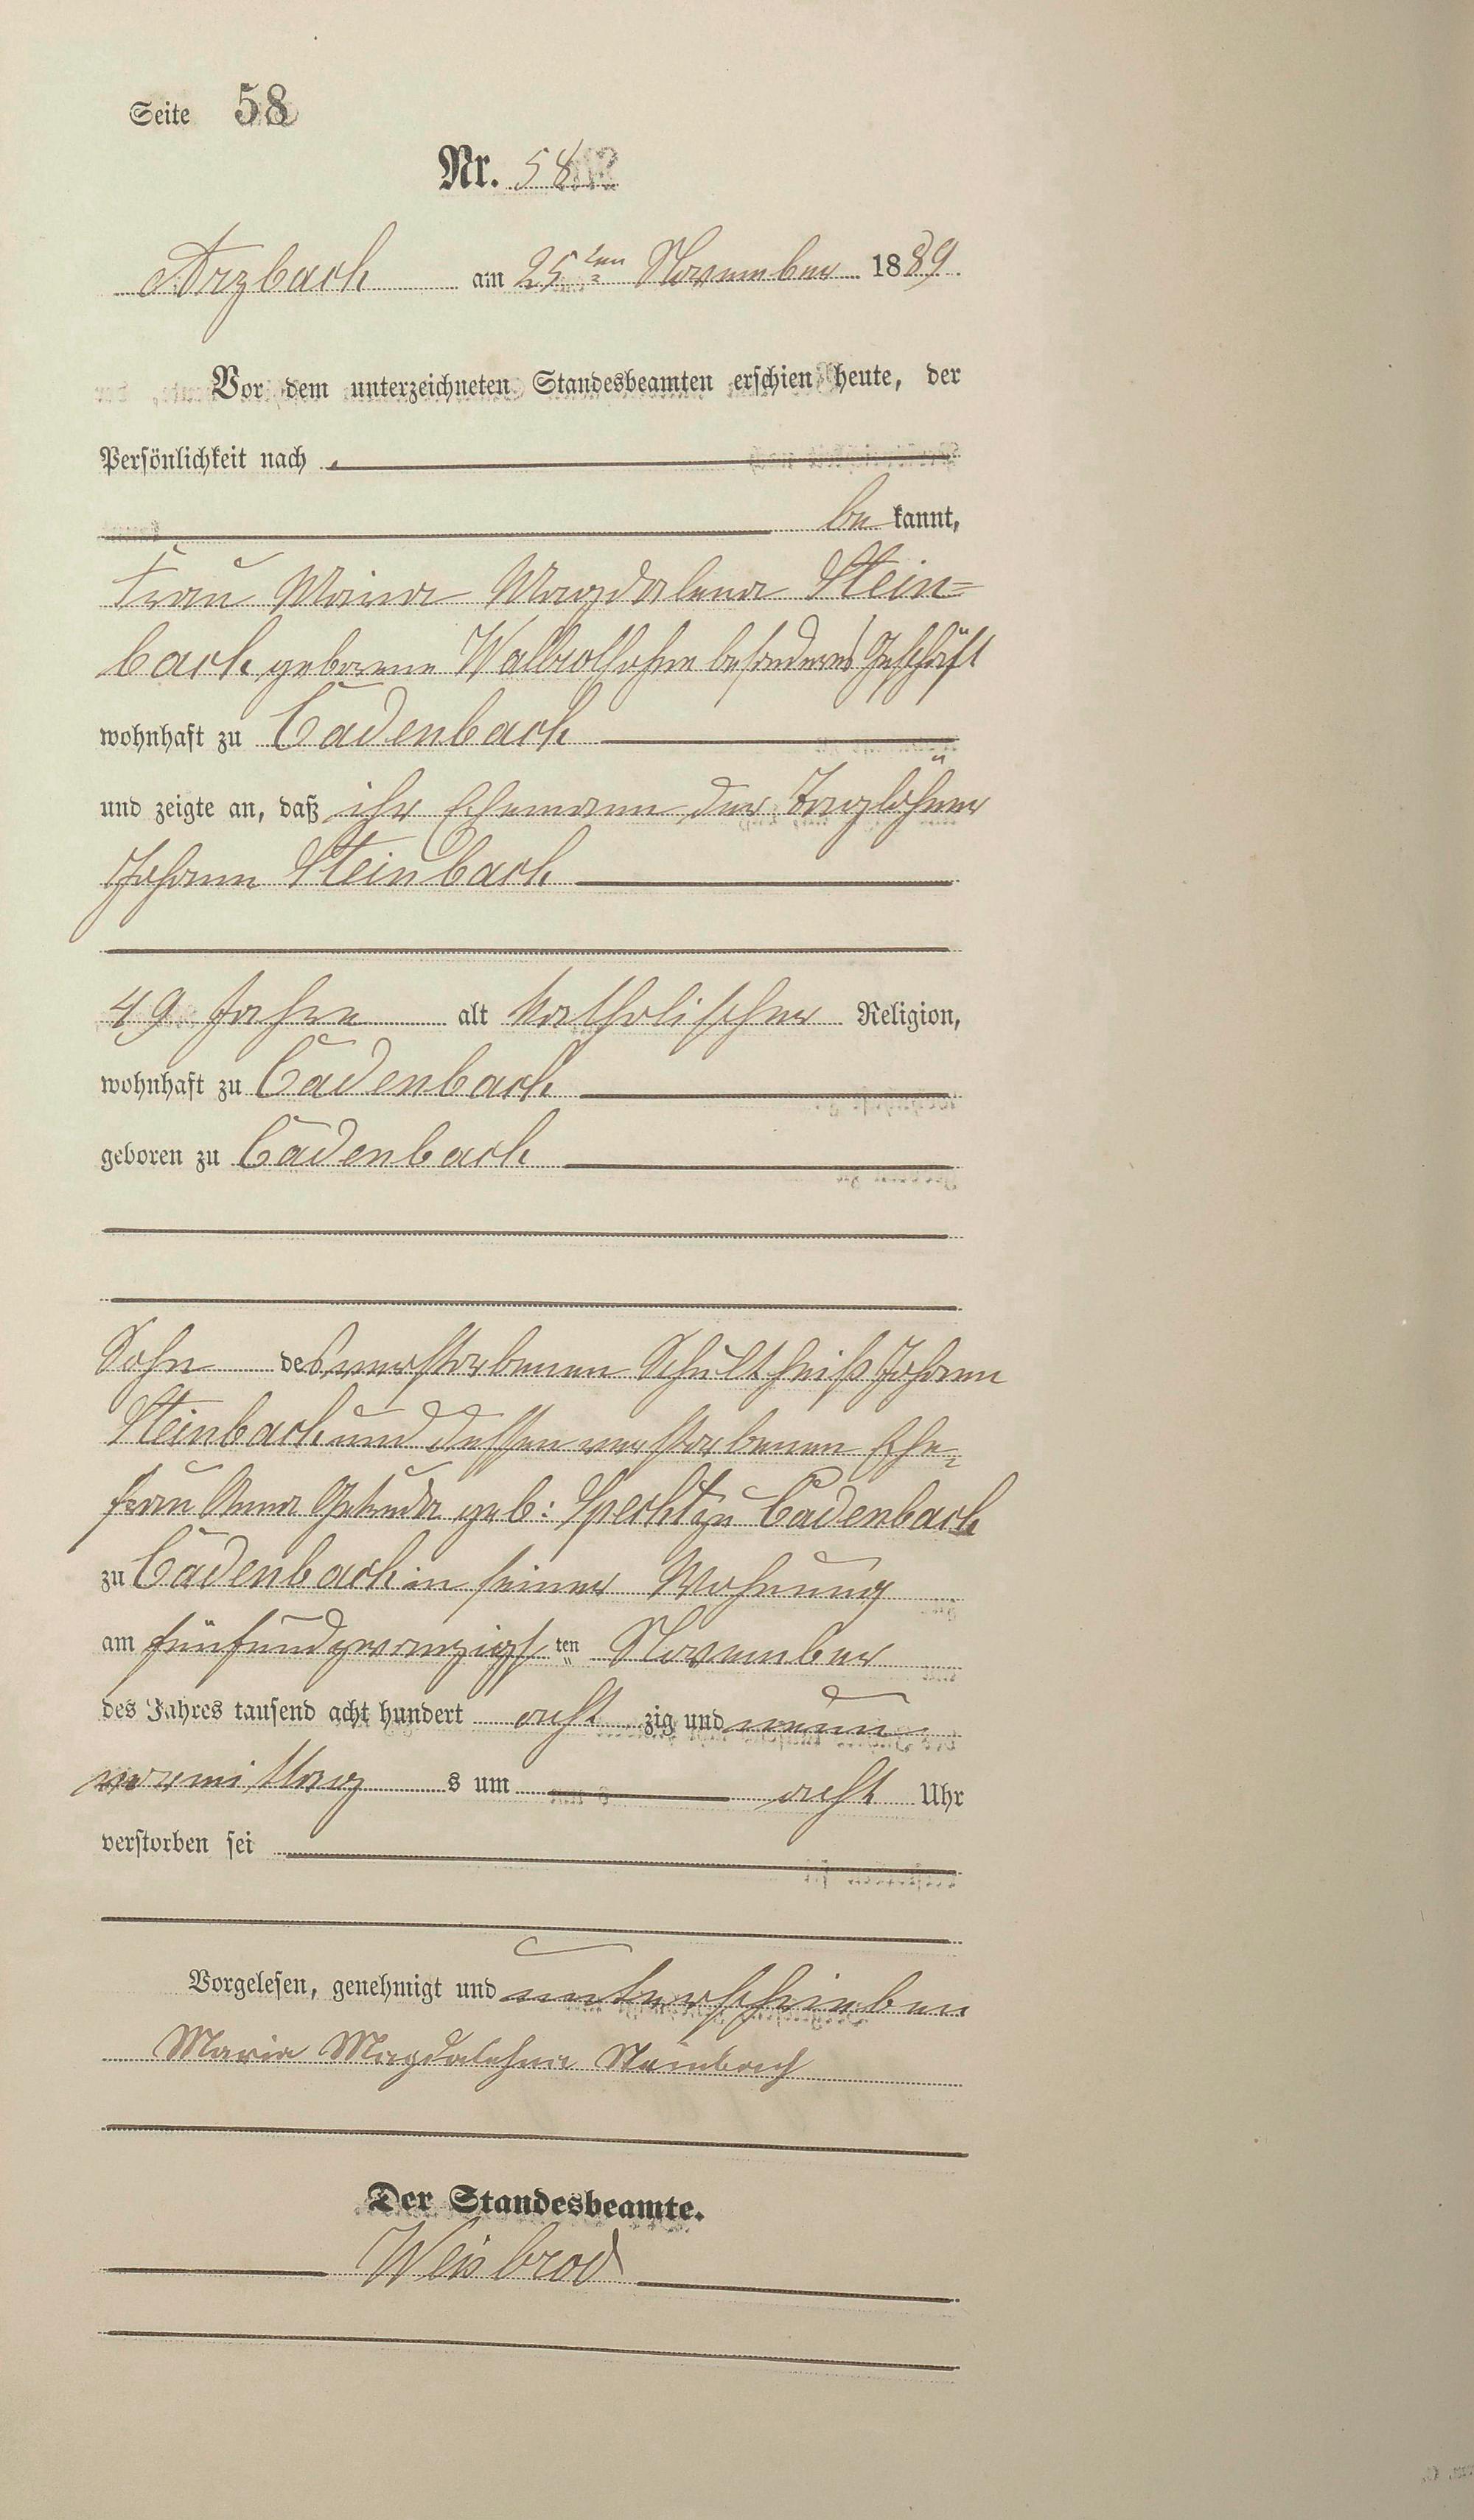 Seite 58
Nr. 58
Arzbach am 25ten November 1889.
Vor dem unterzeichneten Standesbeamten erschien heute, der
Persönlichkeit nach
be kannt,
Frau Maria Magdalena Stein=
bach geborene ohne besonderes Geschäft
wohnhaft zu Cadenbach
und zeigte an, daß ihr Ehemann der Taglöhner
Johann Steinbach
49 Jahre alt katholischer Religion,
wohnhaft zu Cadenbach
geboren zu Cadenbach
Sohn des verstorbenen Schultheiß Johann
Steinbach und dessen verstorbenen Ehe-
frau Anna geb: Specht zu Cadenbach
zu Cadenbach in seiner Wohnung
am fünfundzwanzigsten November
des Jahres tausend acht hundert acht zig und neun
vormittag s um acht Uhr
verstorben sei
Vorgelesen, genehmigt und unterschrieben
Maria Magdalehna Steinbach
Der Standesbeamte.
Weisbrod